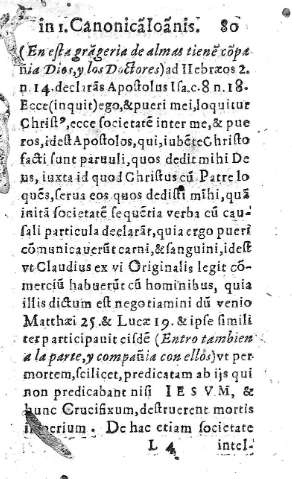 in 1. Canonicã Ioãnis. 80
(En esta grãgeria de almas tienẽ cõpa
ñia Dios, y los Doctores) ad Hebræos 2.
n. 14. declarãs Apostolus Isa. c. 8 n. 18.
Ecce (inquit) ego, & pueri mei, loquitur
Christꝰ, ecce societatẽ inter me, & pue
ros, idest Apostolos, qui, iubẽte Christo
facti sunt paruuli, quos dedit mihi De
us, iuxta id quod Christus cũ Patre lo
quẽs, serua eos quos dedisti mihi, quã
initã societatẽ sequẽtia verba cũ cau-
sali particula declarãt, quia ergo pueri
cõmunicauerũt carni, & sanguini, idest
vt Claudius ex vi Originalis legit cõ-
merciũ habuerũt cũ hominibus, quia
illis dictum est negotiamini dũ venio
Matthæi 25. & Lucæ 19. & ipse simili
ter participauit eisdẽ (Entro tambien
a la parte, y compañia con ellos) vt per
mortem, scilicet, predicatam ab ijs qui
non predicabant nisi IESVM, &
hunc Crucifixum, destruerent mortis
imperium. De hac etiam societate
L 4 intel-